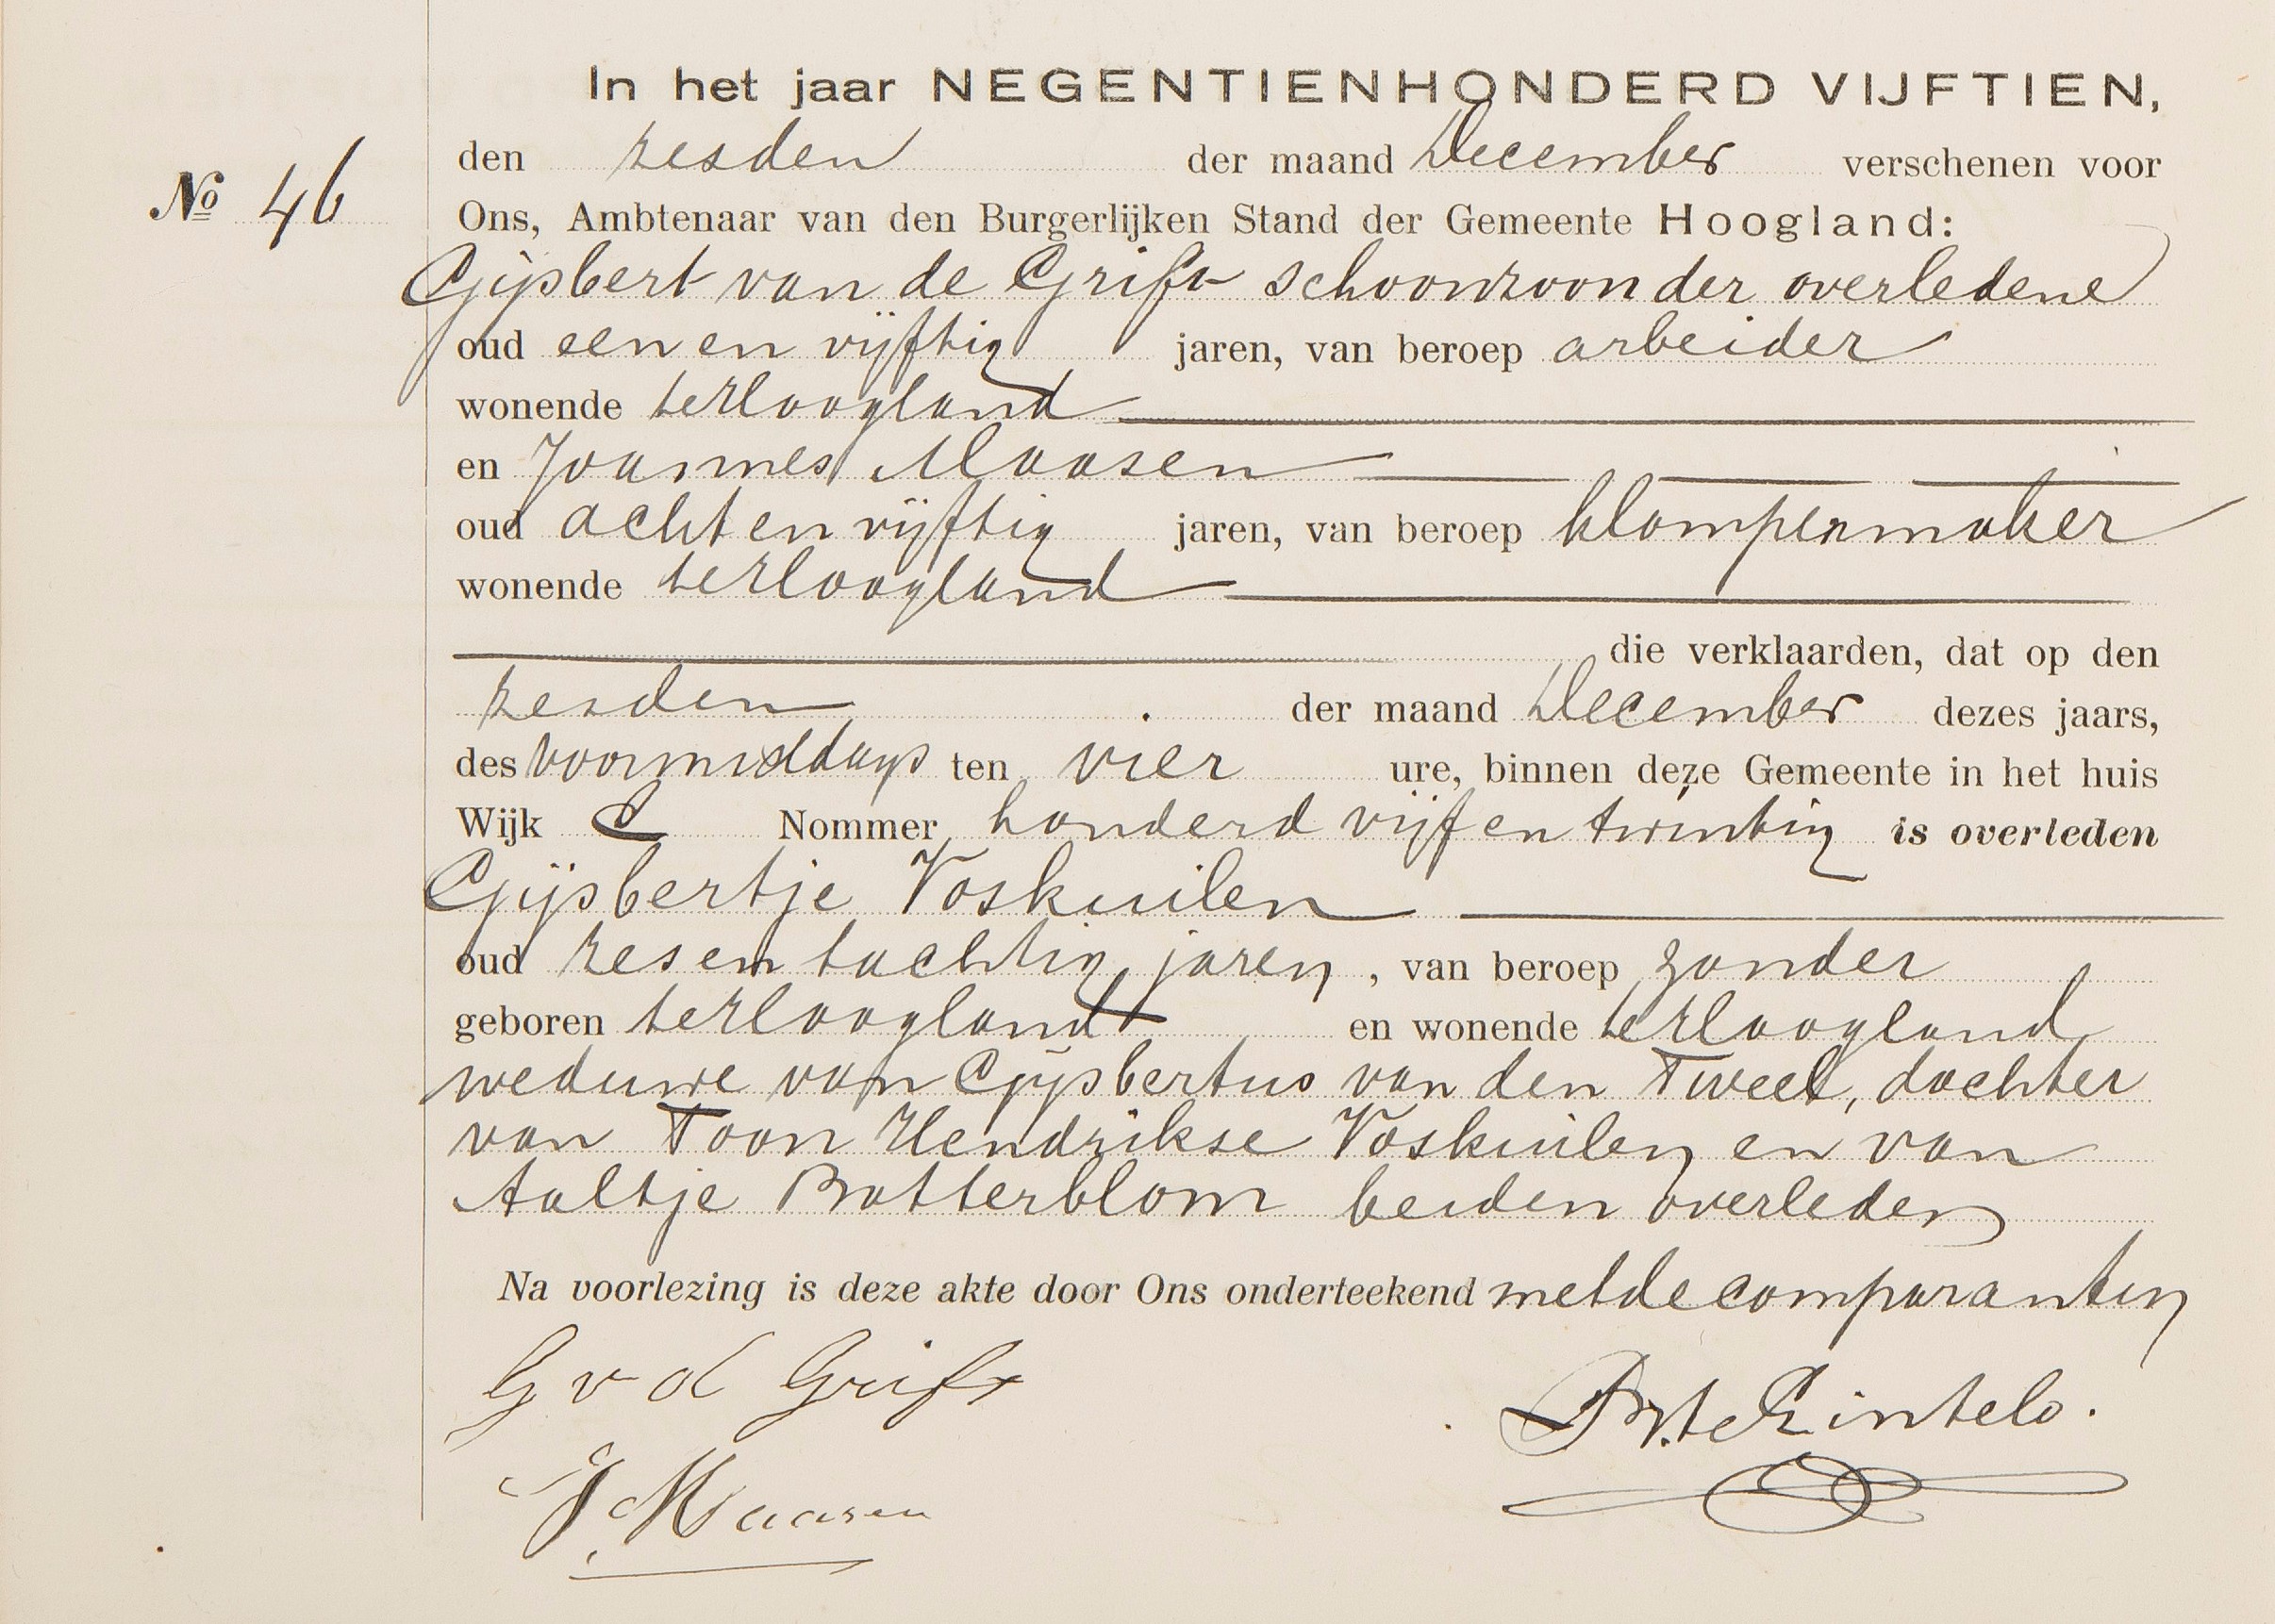 In het jaar NEGENTIENHONDERD VIJFTIEN,
den zesden der maand December verschenen voor
No 46
Ons, Ambtenaar van den Burgerlijken Stand der Gemeente Hoogland:
Gijsbert van de Grift schoonzoon der overledene
oud een en vijftig jaren, van beroep arbeider
wonende te Hoogland
en Joannes Maasen
oud acht en vijftig jaren, van beroep klompenmaker
wonende te Hoogland
die verklaarden, dat op den
zesden der maand December dezes jaars,
des voormiddags ten vier ure, binnen deze Gemeente in het huis
Wijk C Nommer honderd vijf en twintig is overleden
Gijsbertje Voskuilen
oud zes en tachtig jaren, van beroep zonder
geboren te Hoogland en wonende te Hoogland
weduwe van Gijsbertus van den Tweel, dochter
van Toon Hendrikse Voskuilen en van
Aaltje Botterblom beiden overleden
Na voorlezing is deze akte door Ons onderteekend met de comparanten
G v d Grift
J Maasen